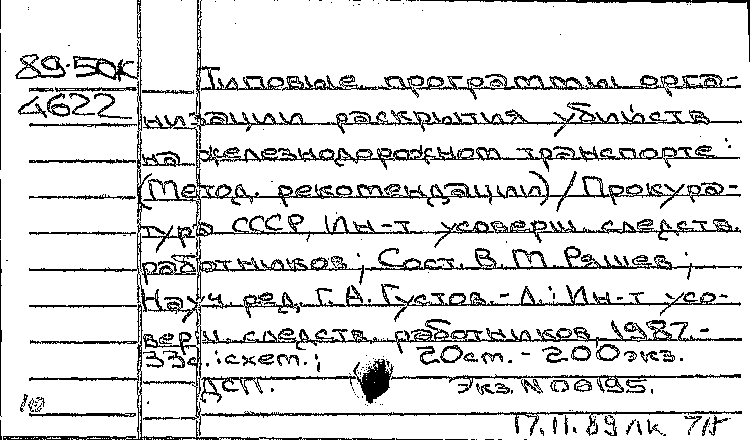 89-50к
4622
Типовые программы орга-
низации раскрытия убийств
на железнодорожном транспорте:
(Метод. рекомендации) / Прокура-
тура СССР, Ин-т усоверш. следств.
работников; Сост. В. М. Ряшев;
Науч. ред. Г. А. Густов. - Л.: Ин-т усо-
верш. следств. работников, 1987. -
33с.: схем.; 20см. - 200экз.
ДСП. Экз. N 00195.
10
17.11.89 лк